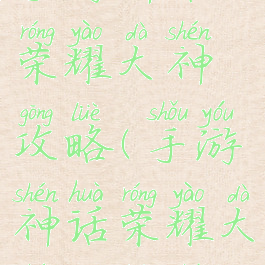 róng yào dà shén
荣耀大神
gōng lüè shǒu yóu
攻略(手游
shén huà róng yào dà
神话荣耀大